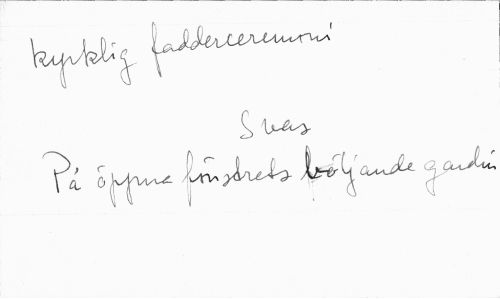 kyrklig fadderceremoni
Svaj
På öppna fönstrets böljande gardin